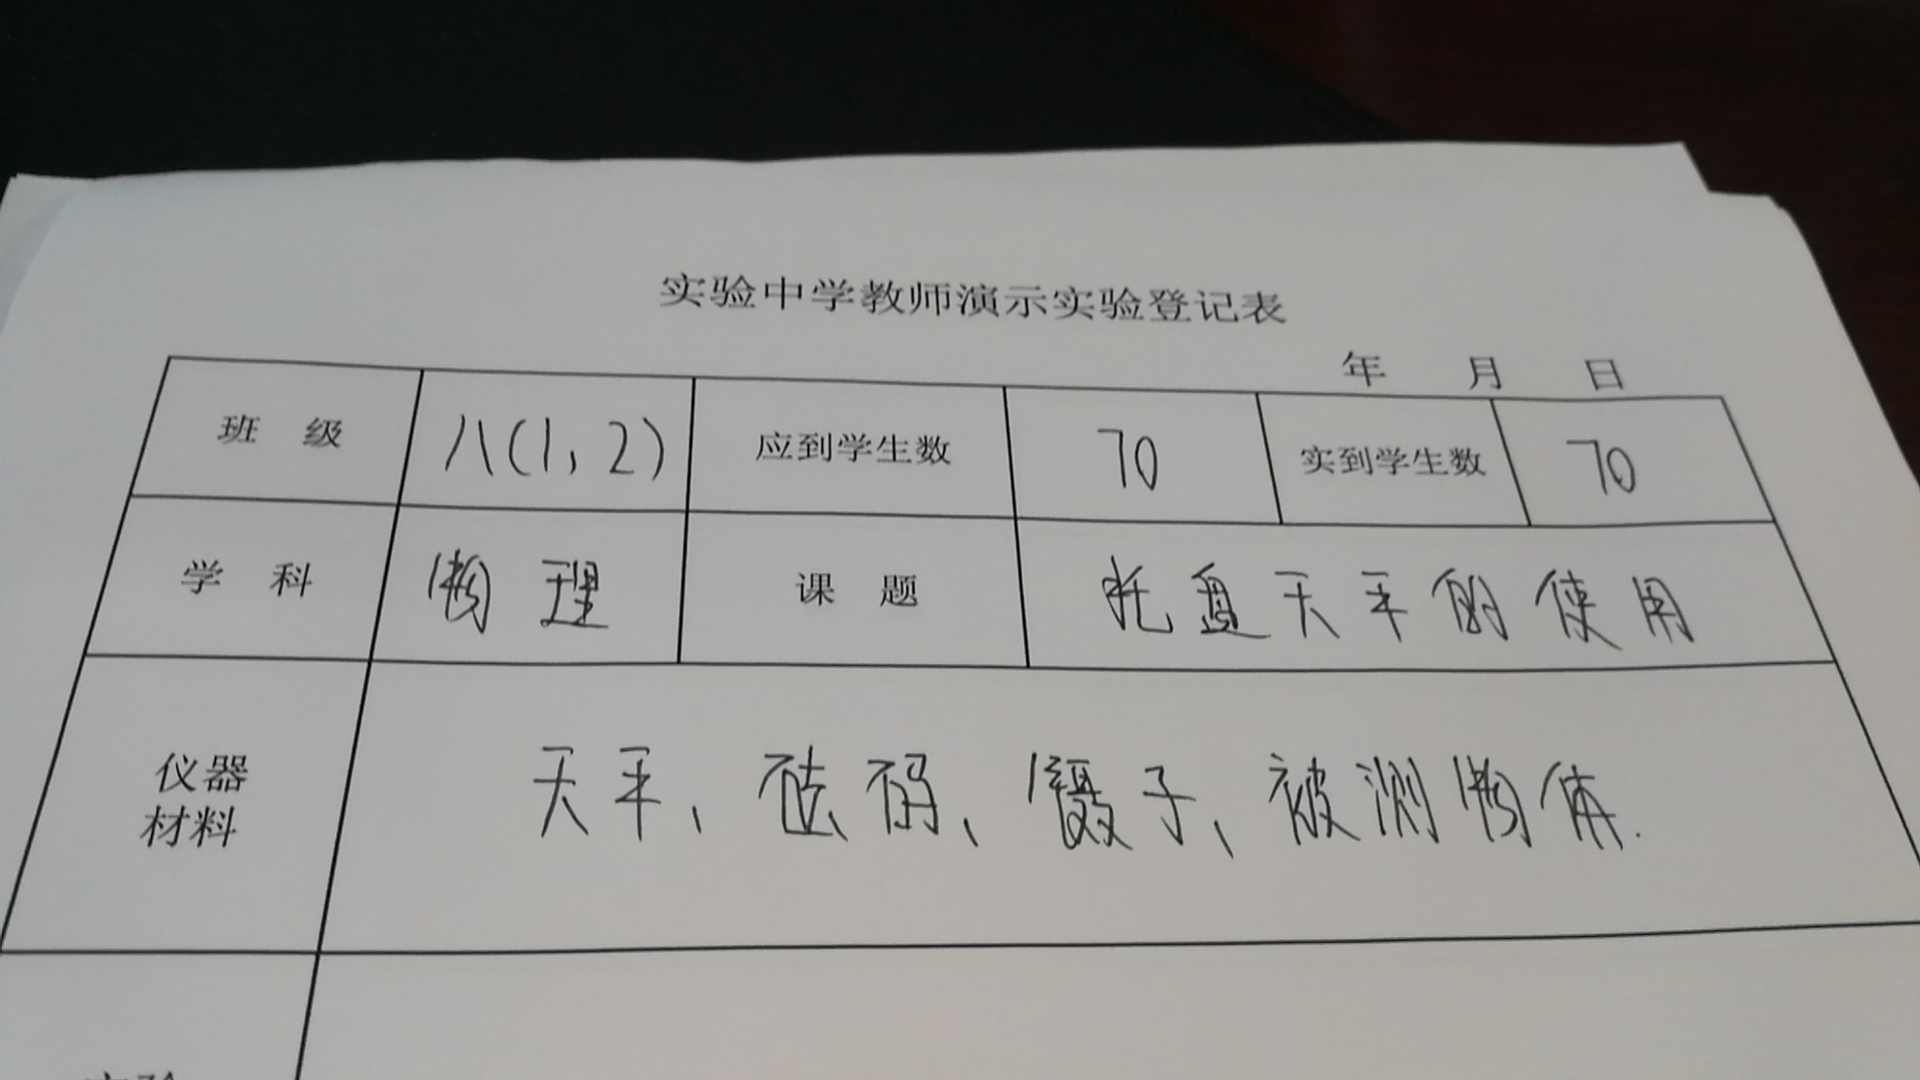 实验中学教师演示实验登记表
年 月 日
班 级 八(1,2) 应到学生数 70 实到学生数 70
学 科 物理 课 题 托盘天平的使用
仪器
材料
天平、砝码、镊子、被测物体.
实验